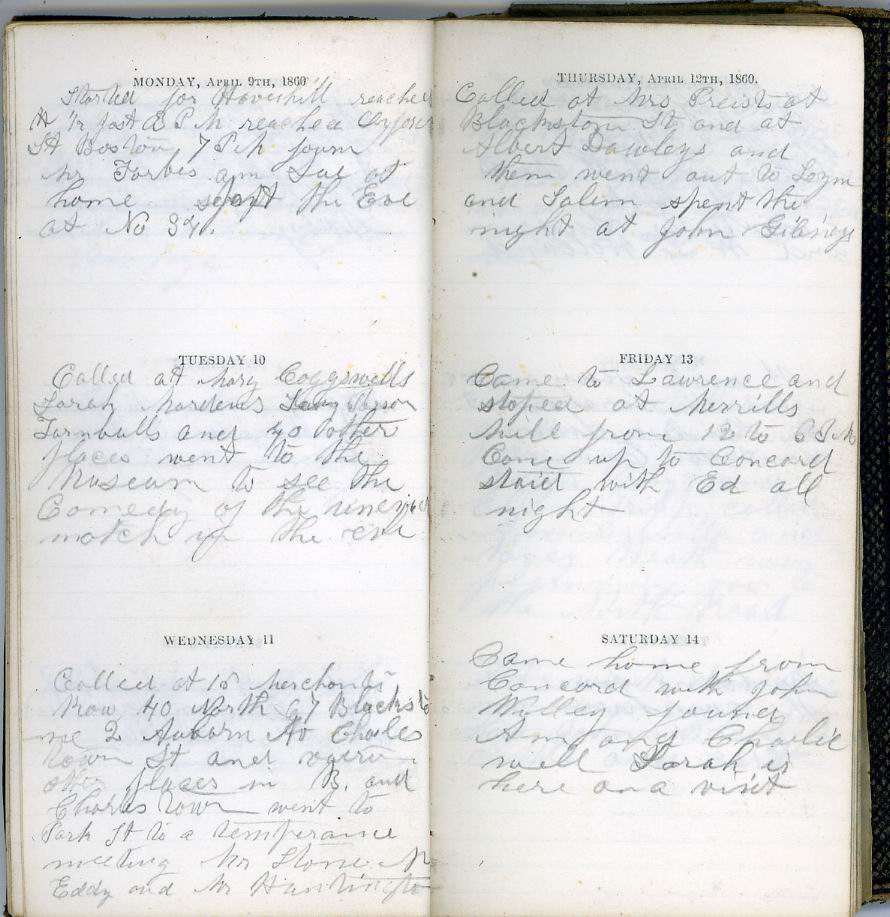 MONDAY, APRIL 9TH, 1860
Started for Haverhill reached
H 1/2 past 3 P M reached
St Boston 7 P M found
Mr Forbes am Sue at
home spent the Eve
at No 37.
TUESDAY 10
Called at Mary Coggswells
Sarah Mardens
Turnbulls and 40 other
places went to the
Museum to see the
Comedy of the unequal
match in the eve
WEDNESDAY 11
Called at 15 Merchants
Row 40 North 67 Blacksto
ne 2 Auburn Av Charles
town St and
other places in B. and
Charlestown went to
Park St to a temperance
meeting Mr Stone Mr
Eddy and Mr Huntington
THURSDAY, APRIL 12TH, 1860.
Called at Mrs Preists at
Blackstone St and at
Albert Dawleys and
then went out to Lynn
and Salem spent the
night at John
FRIDAY 13
Came to Lawrence and
stoped at Merrills
Mill from 12 to 6 P.M
Come up to Concord
staid with Ed all
night
SATURDAY 14
Came home from
Concord with John
Willey found
Am and Charlie
well Sarah is
here on a visit